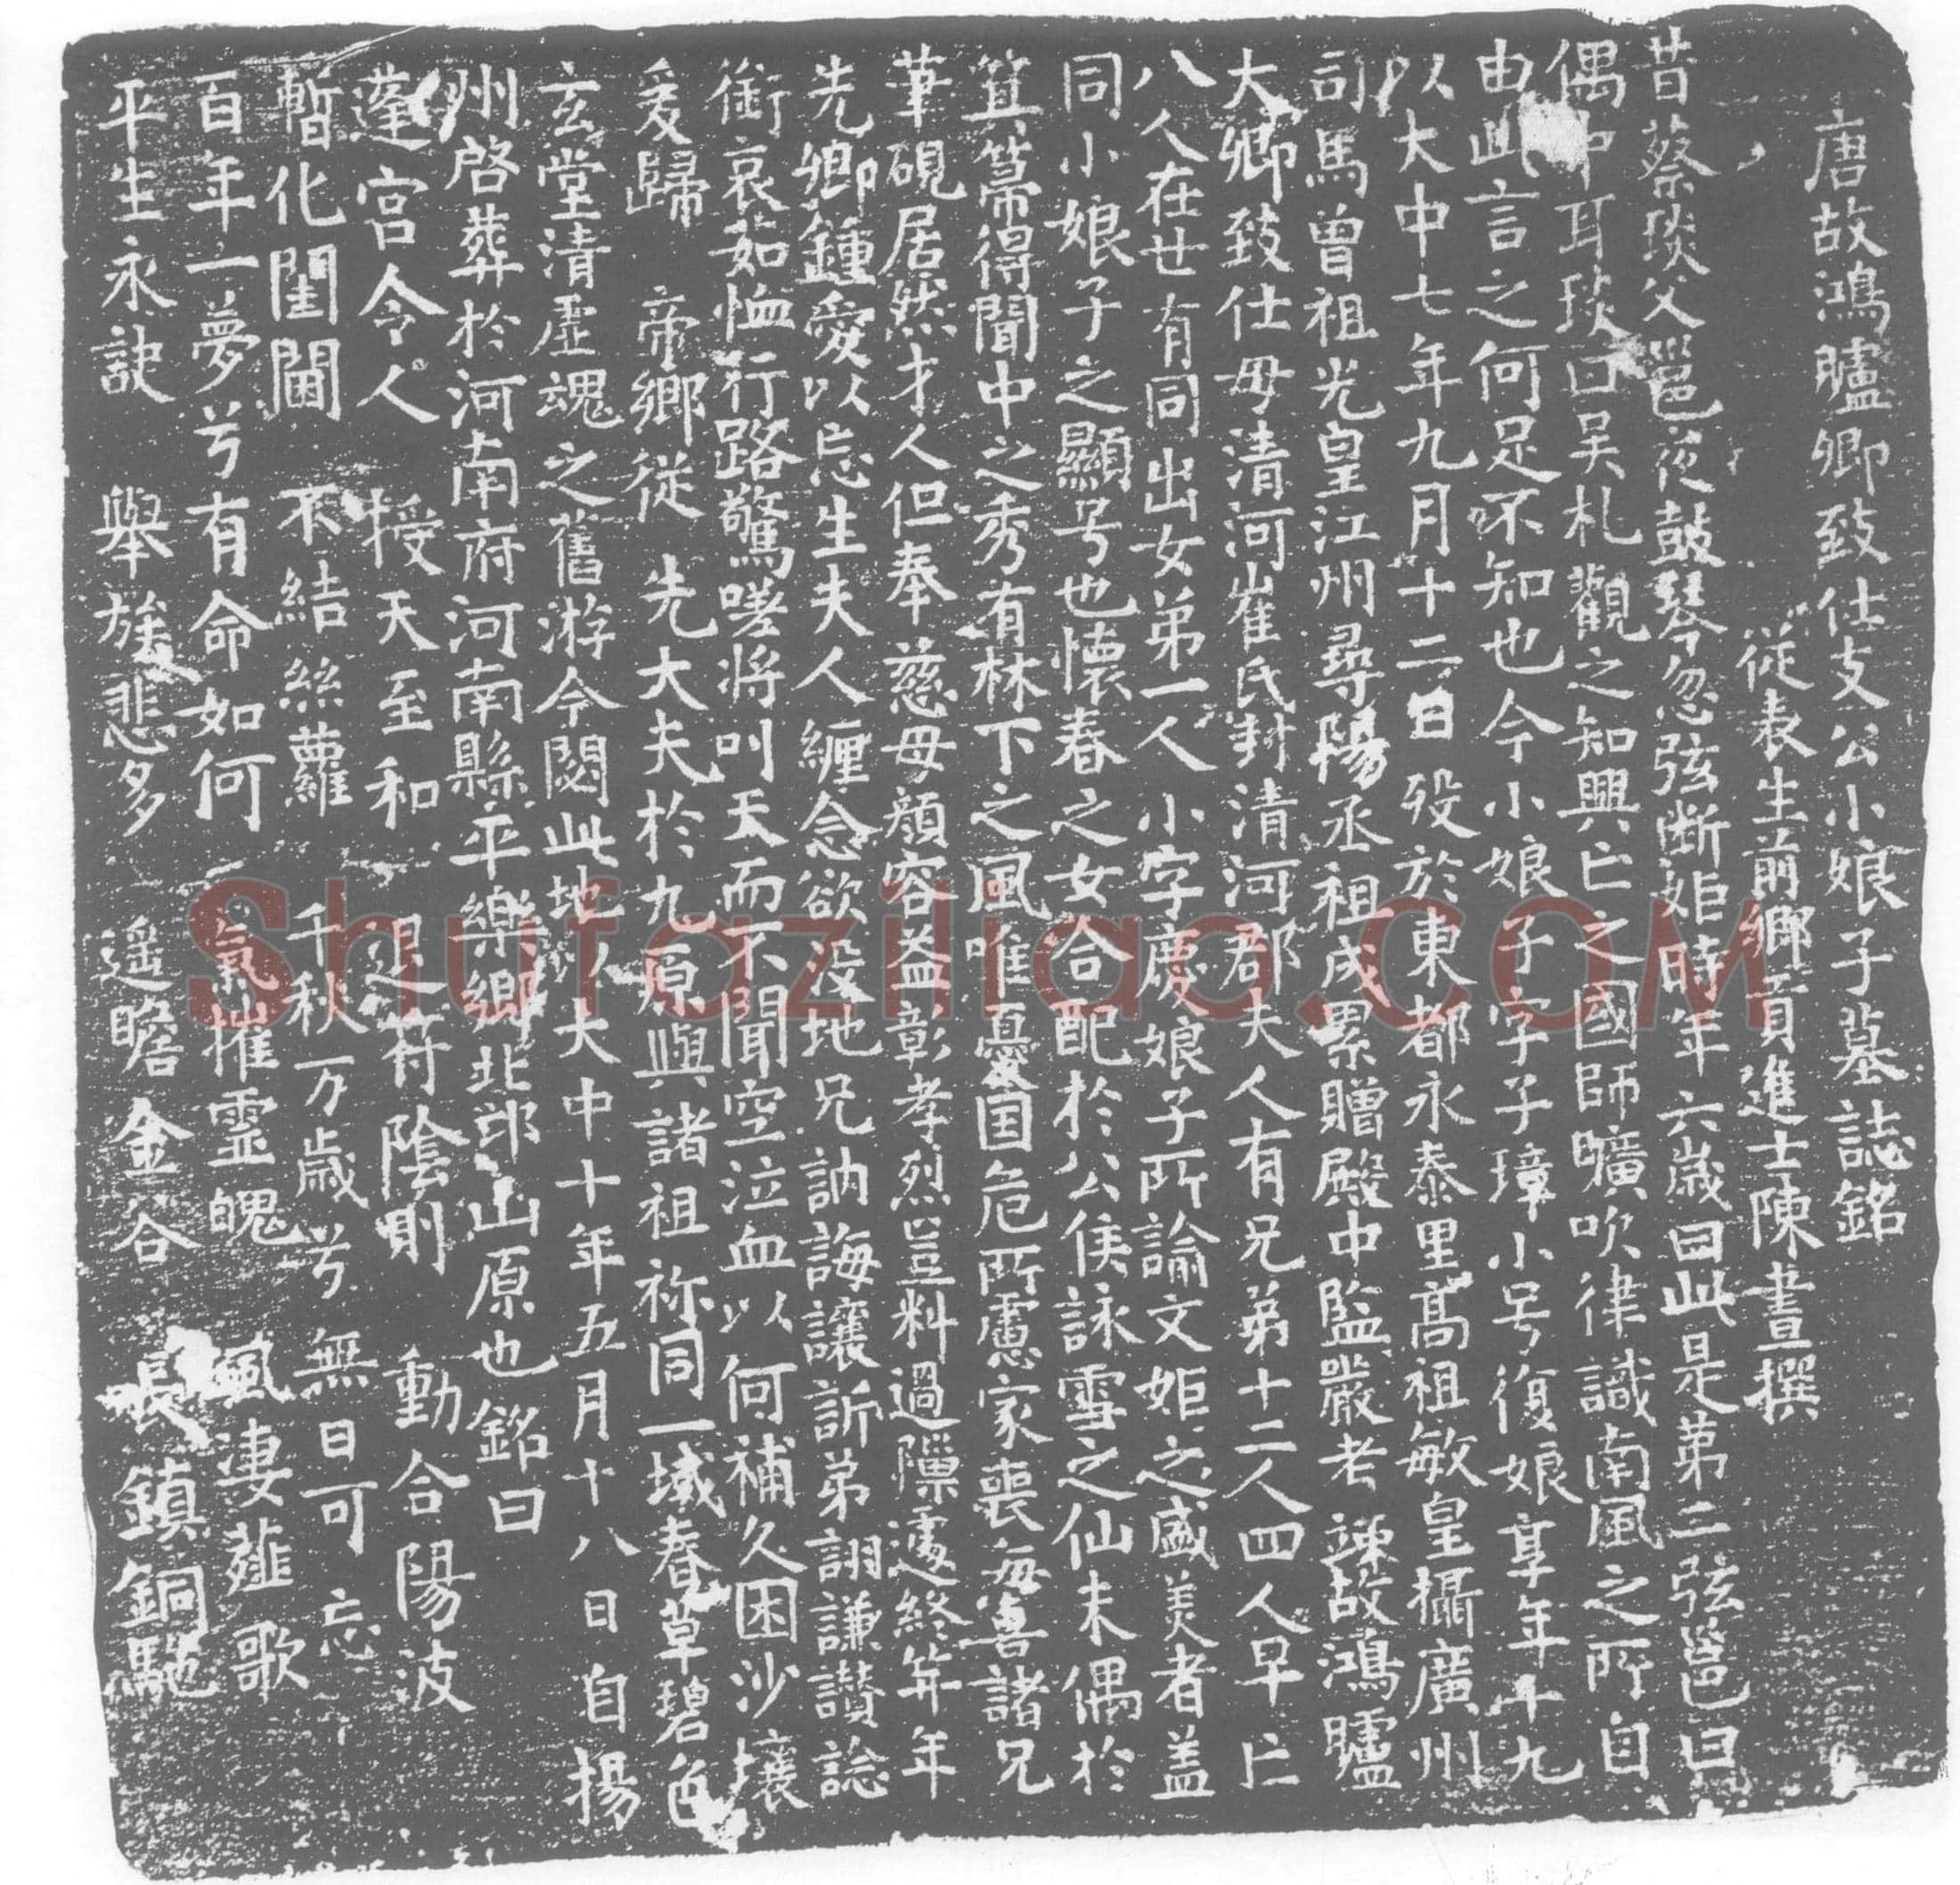 唐故鴻臚卿致仕支公小娘子墓誌銘
從表生前鄉貢進士陳晝撰
昔蔡琰父邕夜鼓琴忽弦斷姖時年六歲曰此是第二弦邕曰
偶中耳琰曰吴札觀之知興亡之國師曠吹律識南風之所自
由此言之何足不知也今小娘子字子璋小号復娘享年十九
以大中七年九月十二日歿於東都永泰里髙祖敏皇攝廣州
司馬曾祖光皇江州尋陽丞祖成累贈殿中監嚴考諱竦故鴻臚
大卿致仕母清河崔氏封清河郡夫人有兄弟十二人四人早亡
八人在世有同出女弟一人小字慶娘子所論文姖之盛美者盖
同小娘子之顯号也懷春之女合配於公侯詠雪之仙未偶於
箕箒得聞中之秀有林下之風唯憂国危所慮家喪每喜諸兄
茟硯居然才人但奉慈母顔容益彰孝烈豈料過隟遽終筓年
先卿鍾愛以忘生夫人纏念欲投地兄訥誨讓訢弟詡謙讃諗
銜哀茹恤行路驚嗟將叫天而不聞空泣血以何補久困沙壤
爰歸 帝鄉從 先大夫於九原與諸祖祢同一域春草碧色
玄堂清虚魂之舊游今閟此地以大中十年五月十八日自揚
州啓葬於河南府河南縣平樂鄉北邙山原也銘曰
蓬宫令人 授天至和 退符陰則 動合陽波
暫化閨閫 不結絲蘿 千秋万歲兮 無日可忘
百年一夢兮 有命如何 一氣摧霊魄 風凄薤歌
平生永訣 舉族悲多 遥瞻金谷 長鎮銅駞
Shufaziliao.COM